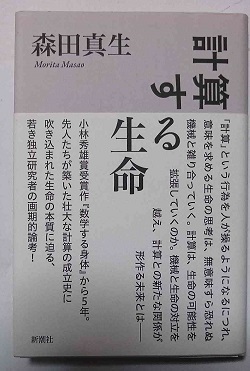 森田真生
Morita Masao
計算す
る
生命
「計算」という行為を人が操るようになるにつれ、
意味を求める生命の思考は、無意味すら恐れぬ
機械と雑り合っていく。計算は、生命の可能性を
拡張していくのか。機械と生命の対立を
越え、計算との新たな関係が
形作る未来とは――
小林秀雄賞受賞作『数学する身体』から5年。
先人たちが築いた壮大な計算の成立史に
吹き込まれた生命の本質に迫る、
若き独立研究者の画期的論考!
新潮社